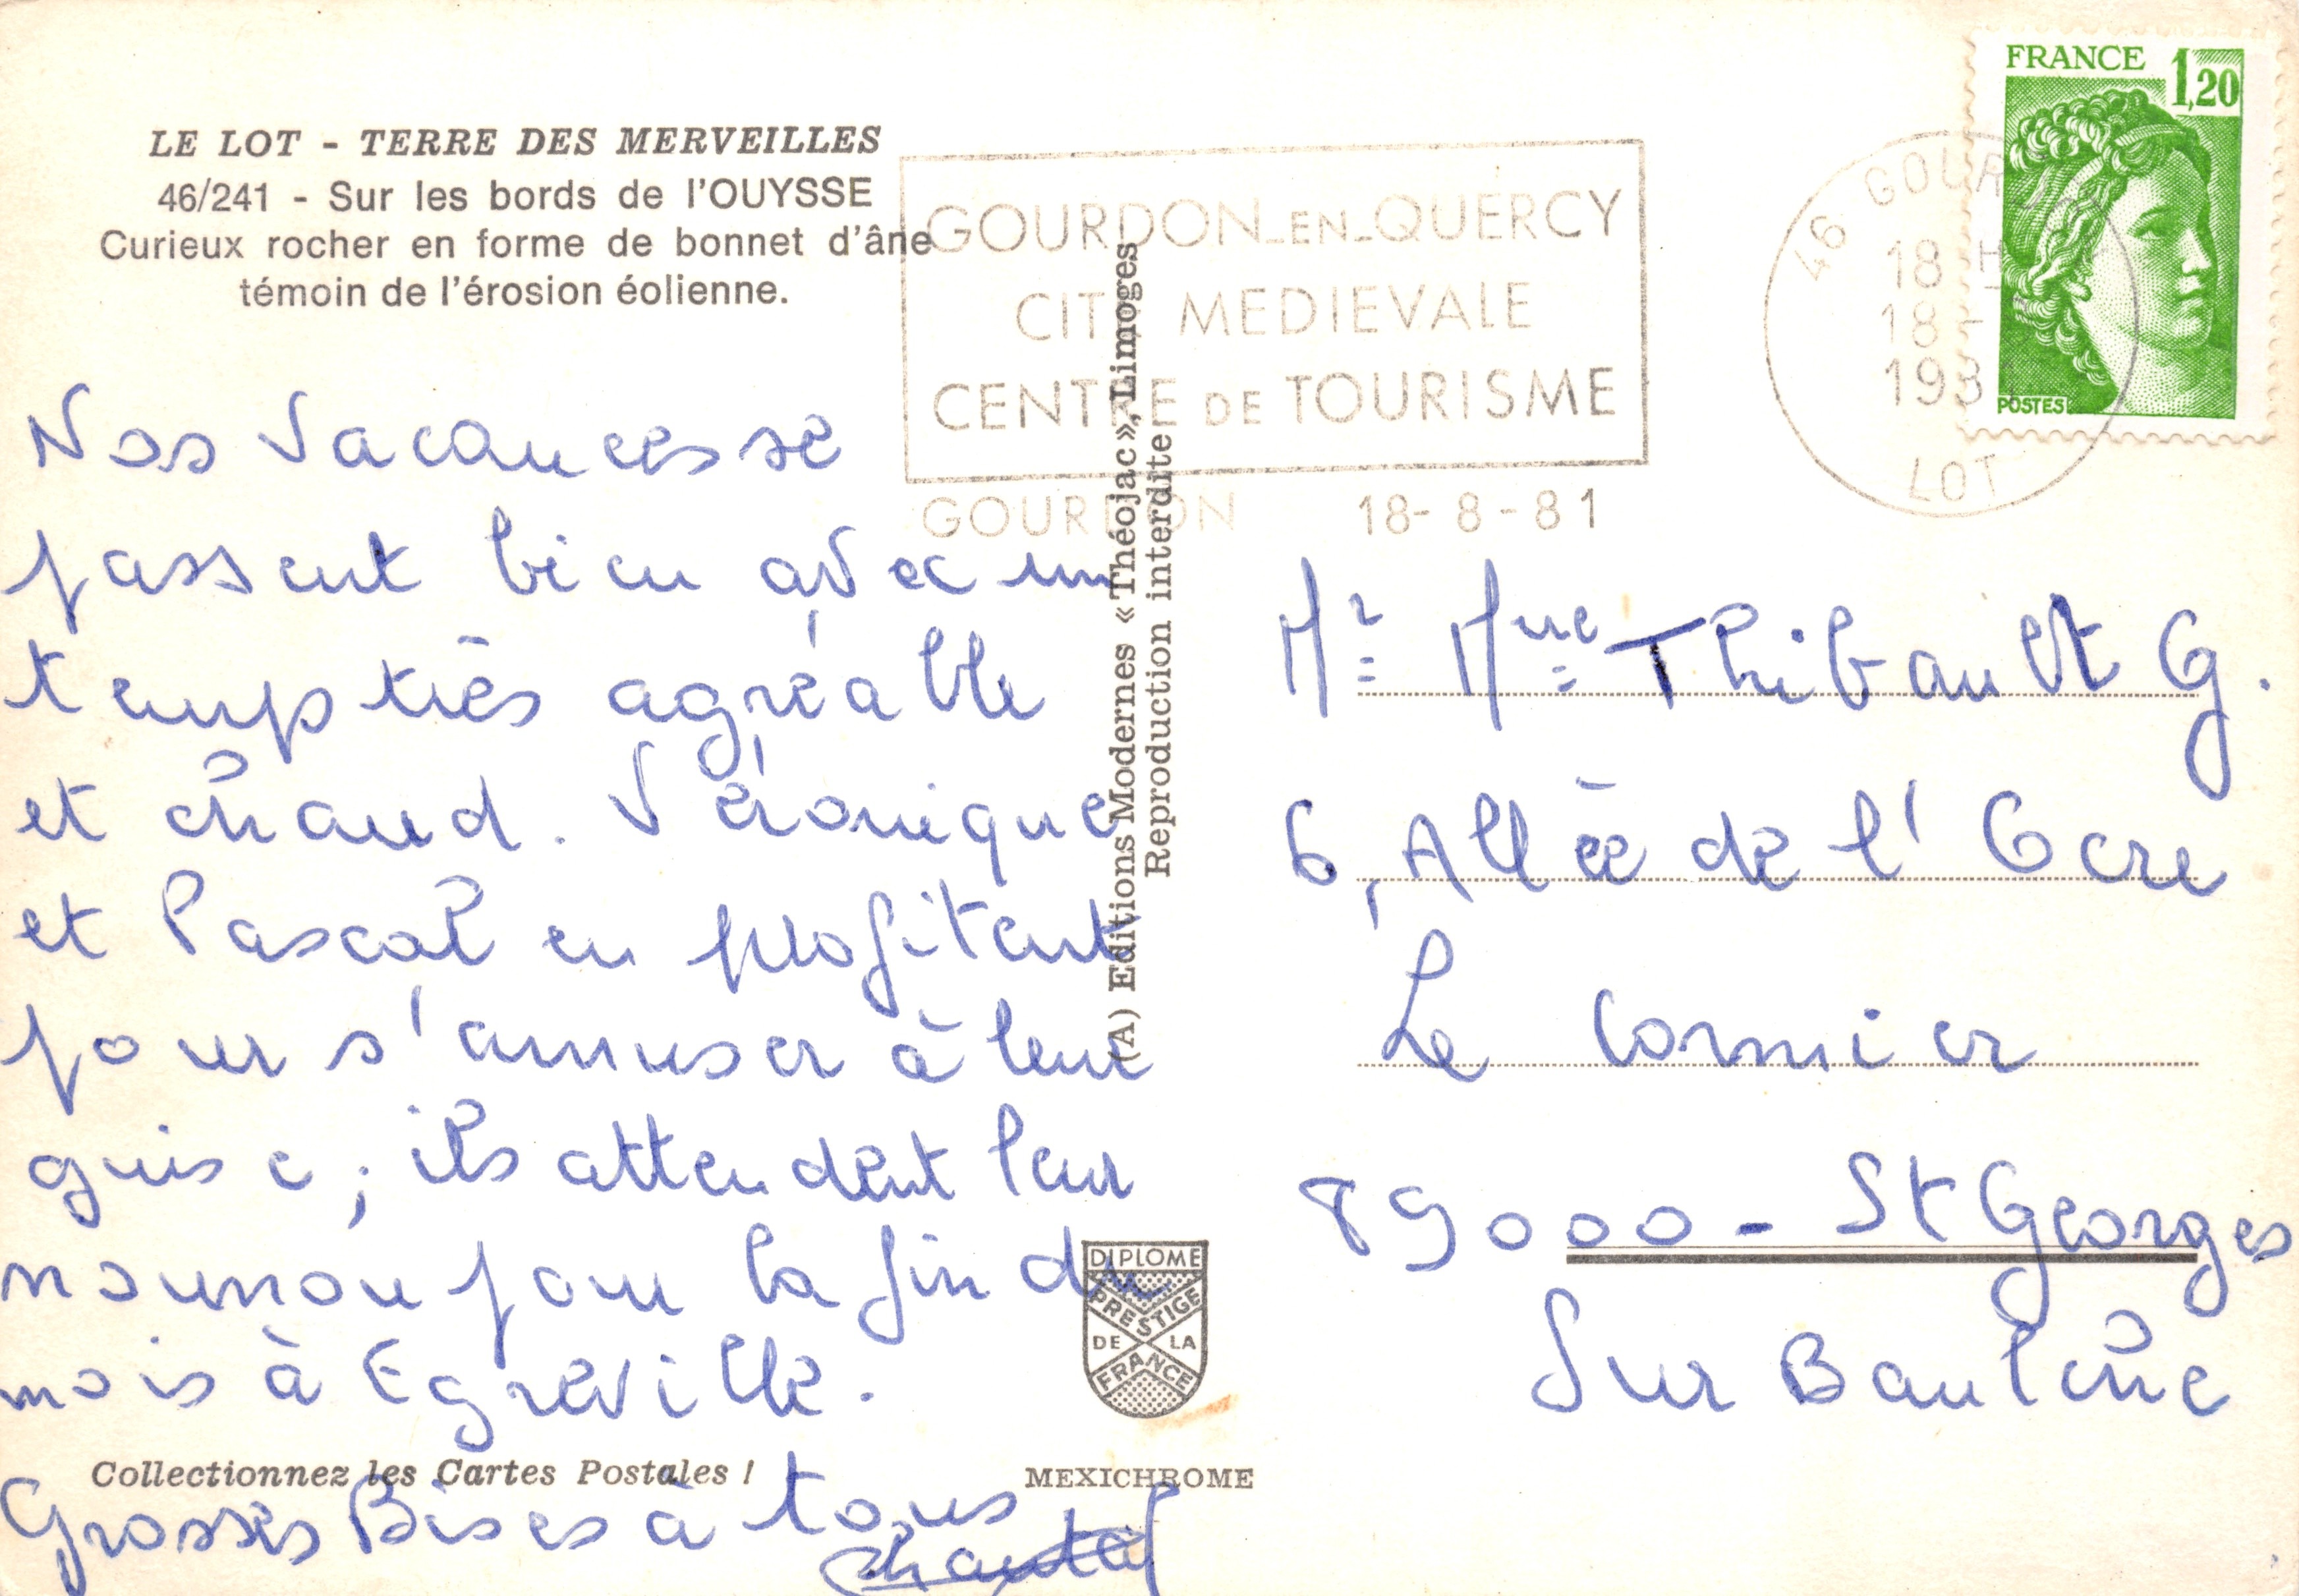 LE LOT - TERRE DES MERVEILLES
46/241 - Sur les bords de l'OUYSSE
Curieux rocher en forme de bonnet d'âne
témoin de l'érosion éolienne.
GOURDON-EN-QUERCY
CITE MEDIEVALE
CENTRE DE TOURISME
GOURDON 18-8-81
46 GOURDON
18 H
18 -
1981
LOT
FRANCE 1,20
POSTES
Nos Vacances se
passent bien avec un
temps très agréable
et chaud. Véronique
et Pascal en profitent
pour s'amuser à leur
guise ; ils attendent leur
nounou pour la fin du
mois à Egreville.
Grosses Bises à tous
Chantal
(A) Editions Modernes « Théojac », Limoges
Reproduction interdite
Mr Mme Thibault G.
6, Allée de l'Ocre
Le Cormier
89000 - St Georges
Sur Baulche
DIPLOME
PRESTIGE
DE LA
FRANCE
Collectionnez les Cartes Postales !
MEXICHROME